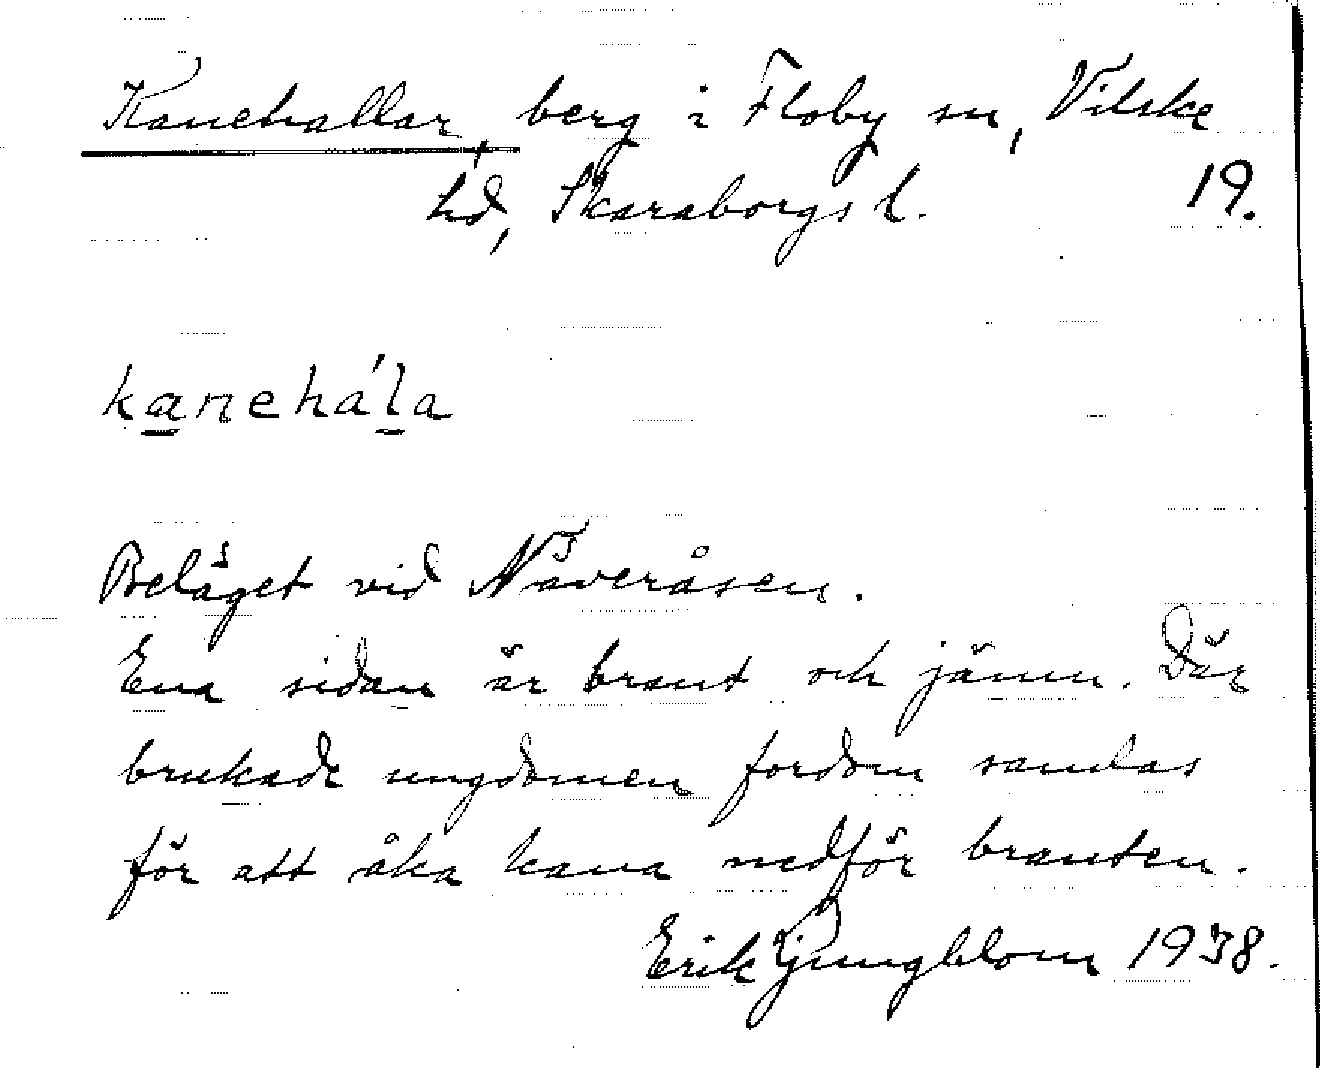 Kanehallar, berg i Floby sn, Vilske
hd, Skaraborgs l. 19.
kanehála
Beläget vid Näveråsen.
Ena sidan är brant och jämn. Där
brukade ungdomen fordom samlas
för att åka kana nedför branten.
Erik Ljungblom 1938.